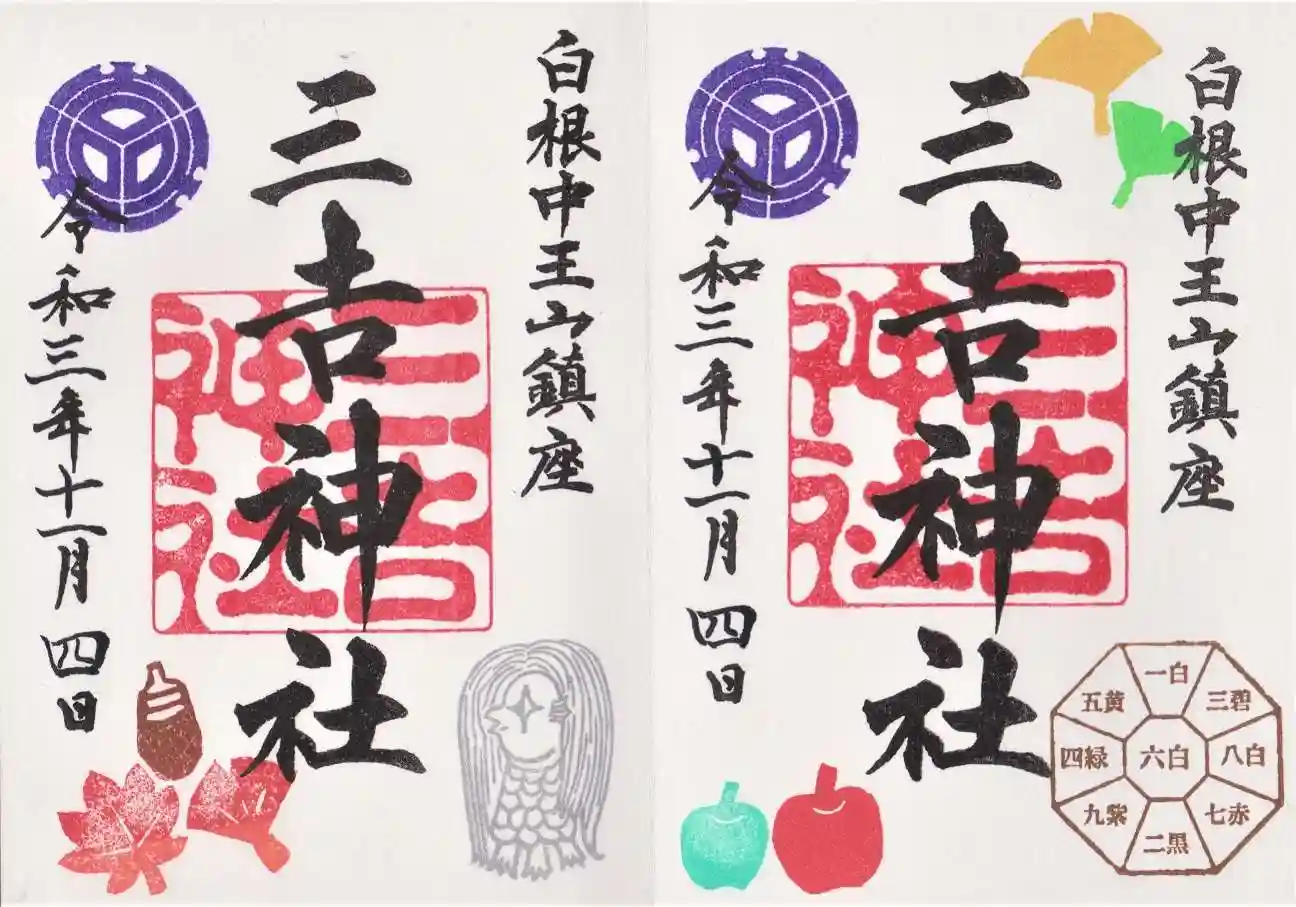 白根中王山鎮座
三吉神社
三吉
神社
令和三年十一月四日
一白
五黄
三碧
四緑
六白
八白
九紫
七赤
二黒
白根中王山鎮座
三吉神社
三吉
神社
令和三年十一月四日